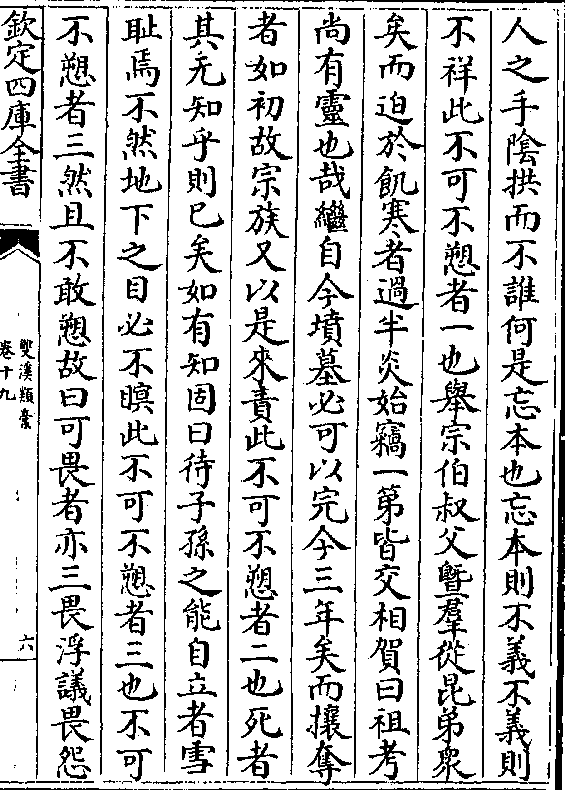 人之手陰拱而不誰何是忘本也忘本則不義不義則
不祥此不可不愬者一也舉宗伯叔父曁羣從昆弟衆
矣而迫於飢寒者過半炎始竊一第皆交相賀曰祖考
尚有靈也哉繼自今墳墓必可以完今三年矣而攘奪
者如初故宗族又以是來責此不可不愬者二也死者
其无知乎則已矣如有知固曰待子孫之能自立者雪
耻焉不然地下之目必不瞑此不可不愬者三也不可
不愬者三然且不敢愬故曰可畏者亦三畏浮議畏怨
欽定四庫全書
雙溪類稾
卷十九
六